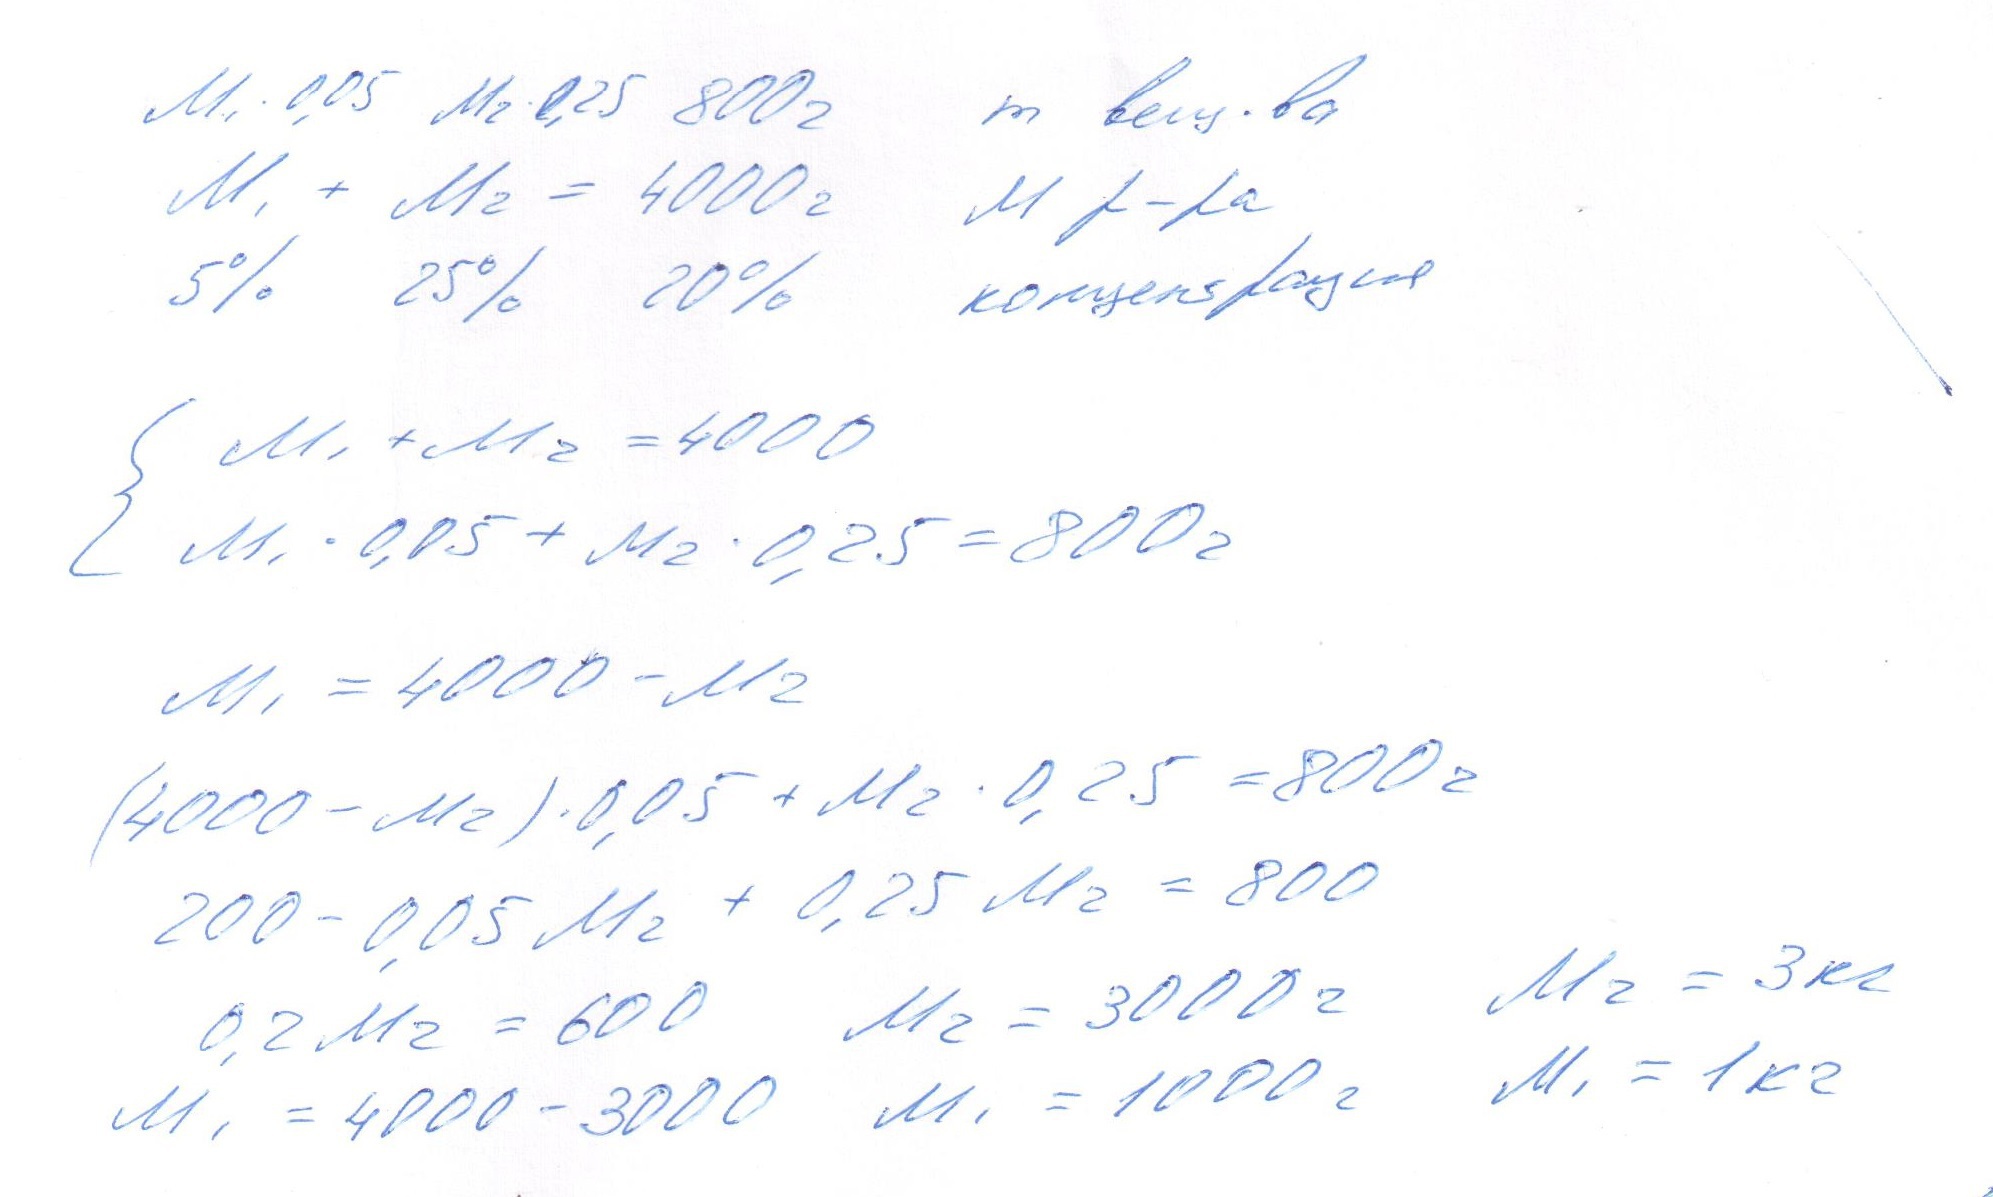 М₁·0,05 М₂·0,25 800г m вещ-ва
М₁ + М₂ = 4000г М р-ра
5% 25% 20% концентрация
М₁ + М₂ = 4000
М₁·0,05 + М₂·0,25 = 800г
М₁ = 4000 - М₂
(4000 - М₂)·0,05 + М₂·0,25 = 800г
200 - 0,05 М₂ + 0,25 М₂ = 800
0,2 М₂ = 600 М₂ = 3000г М₂ = 3кг
М₁ = 4000 - 3000 М₁ = 1000г М₁ = 1кг